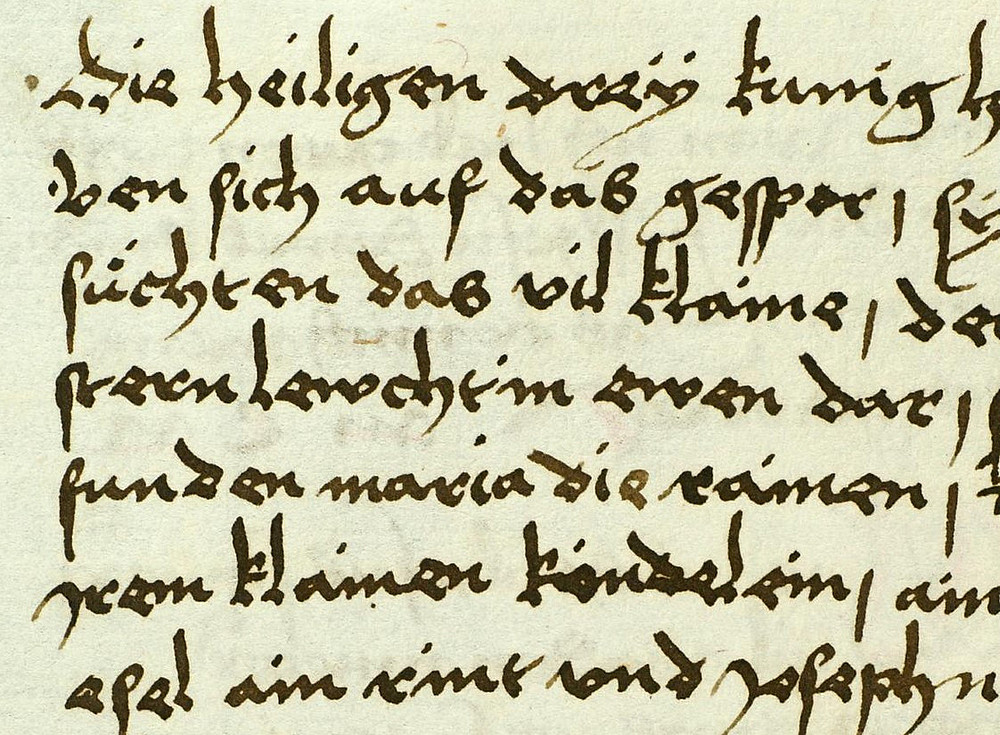 Die heiligen dreÿ kunig h
ben sich auf das gespor / sÿ
süchten das vil klaine / de
stern lewcht in ewen dar /
funden maria die rainen /
jrem klainen kindelein / ain
esel ain rint vnd Joseph n